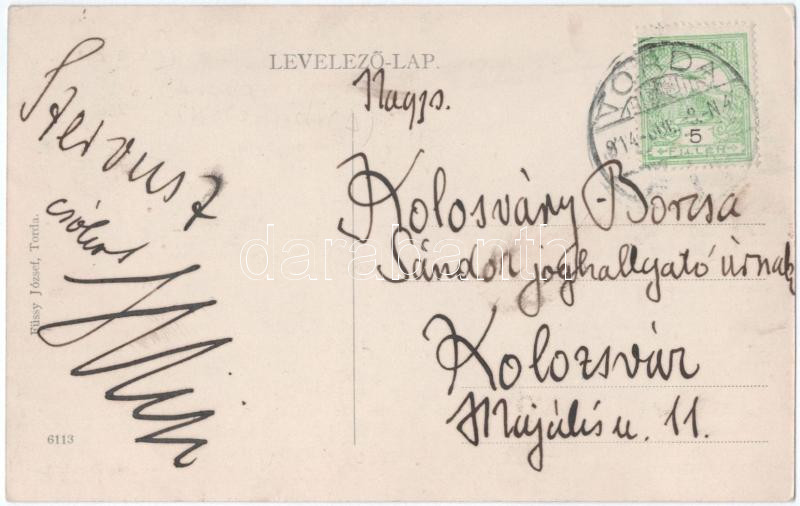 LEVELEZŐ-LAP.
Nagys.
Kolosváry-Borcsa
Sándor joghallgató úrnak
Kolozsvár
Majális u. 11.
Szervusz
csókol
Füssy József, Torda.
6113
TORDA
5
FILLÉR
darabanth